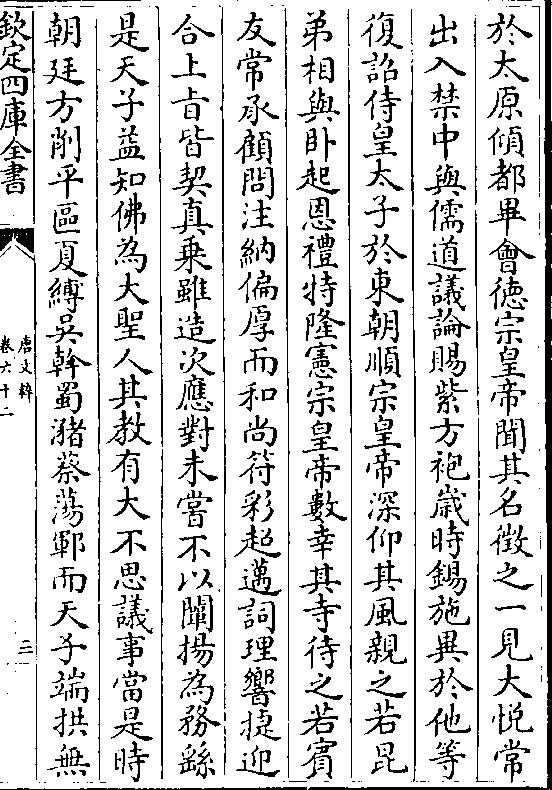 於太原傾都畢會徳宗皇帝聞其名徴之一見大悦常
出入禁中與儒道議論賜紫方袍歳時錫施異於他等
復詔侍皇太子於東朝順宗皇帝深仰其風親之若昆
弟相與卧起恩禮特隆憲宗皇帝數幸其寺待之若賓
友常承顧問注納偏厚而和尚符彩超邁詞理響捷迎
合上㫖皆契真乗雖造次應對未嘗不以闡揚為務繇
是天子益知佛為大聖人其教有大不思議事當是時
朝廷方削平區夏縛吳斡蜀瀦蔡蕩鄆而天子端拱無
欽定四庫全書
唐文粹
卷六十二
三